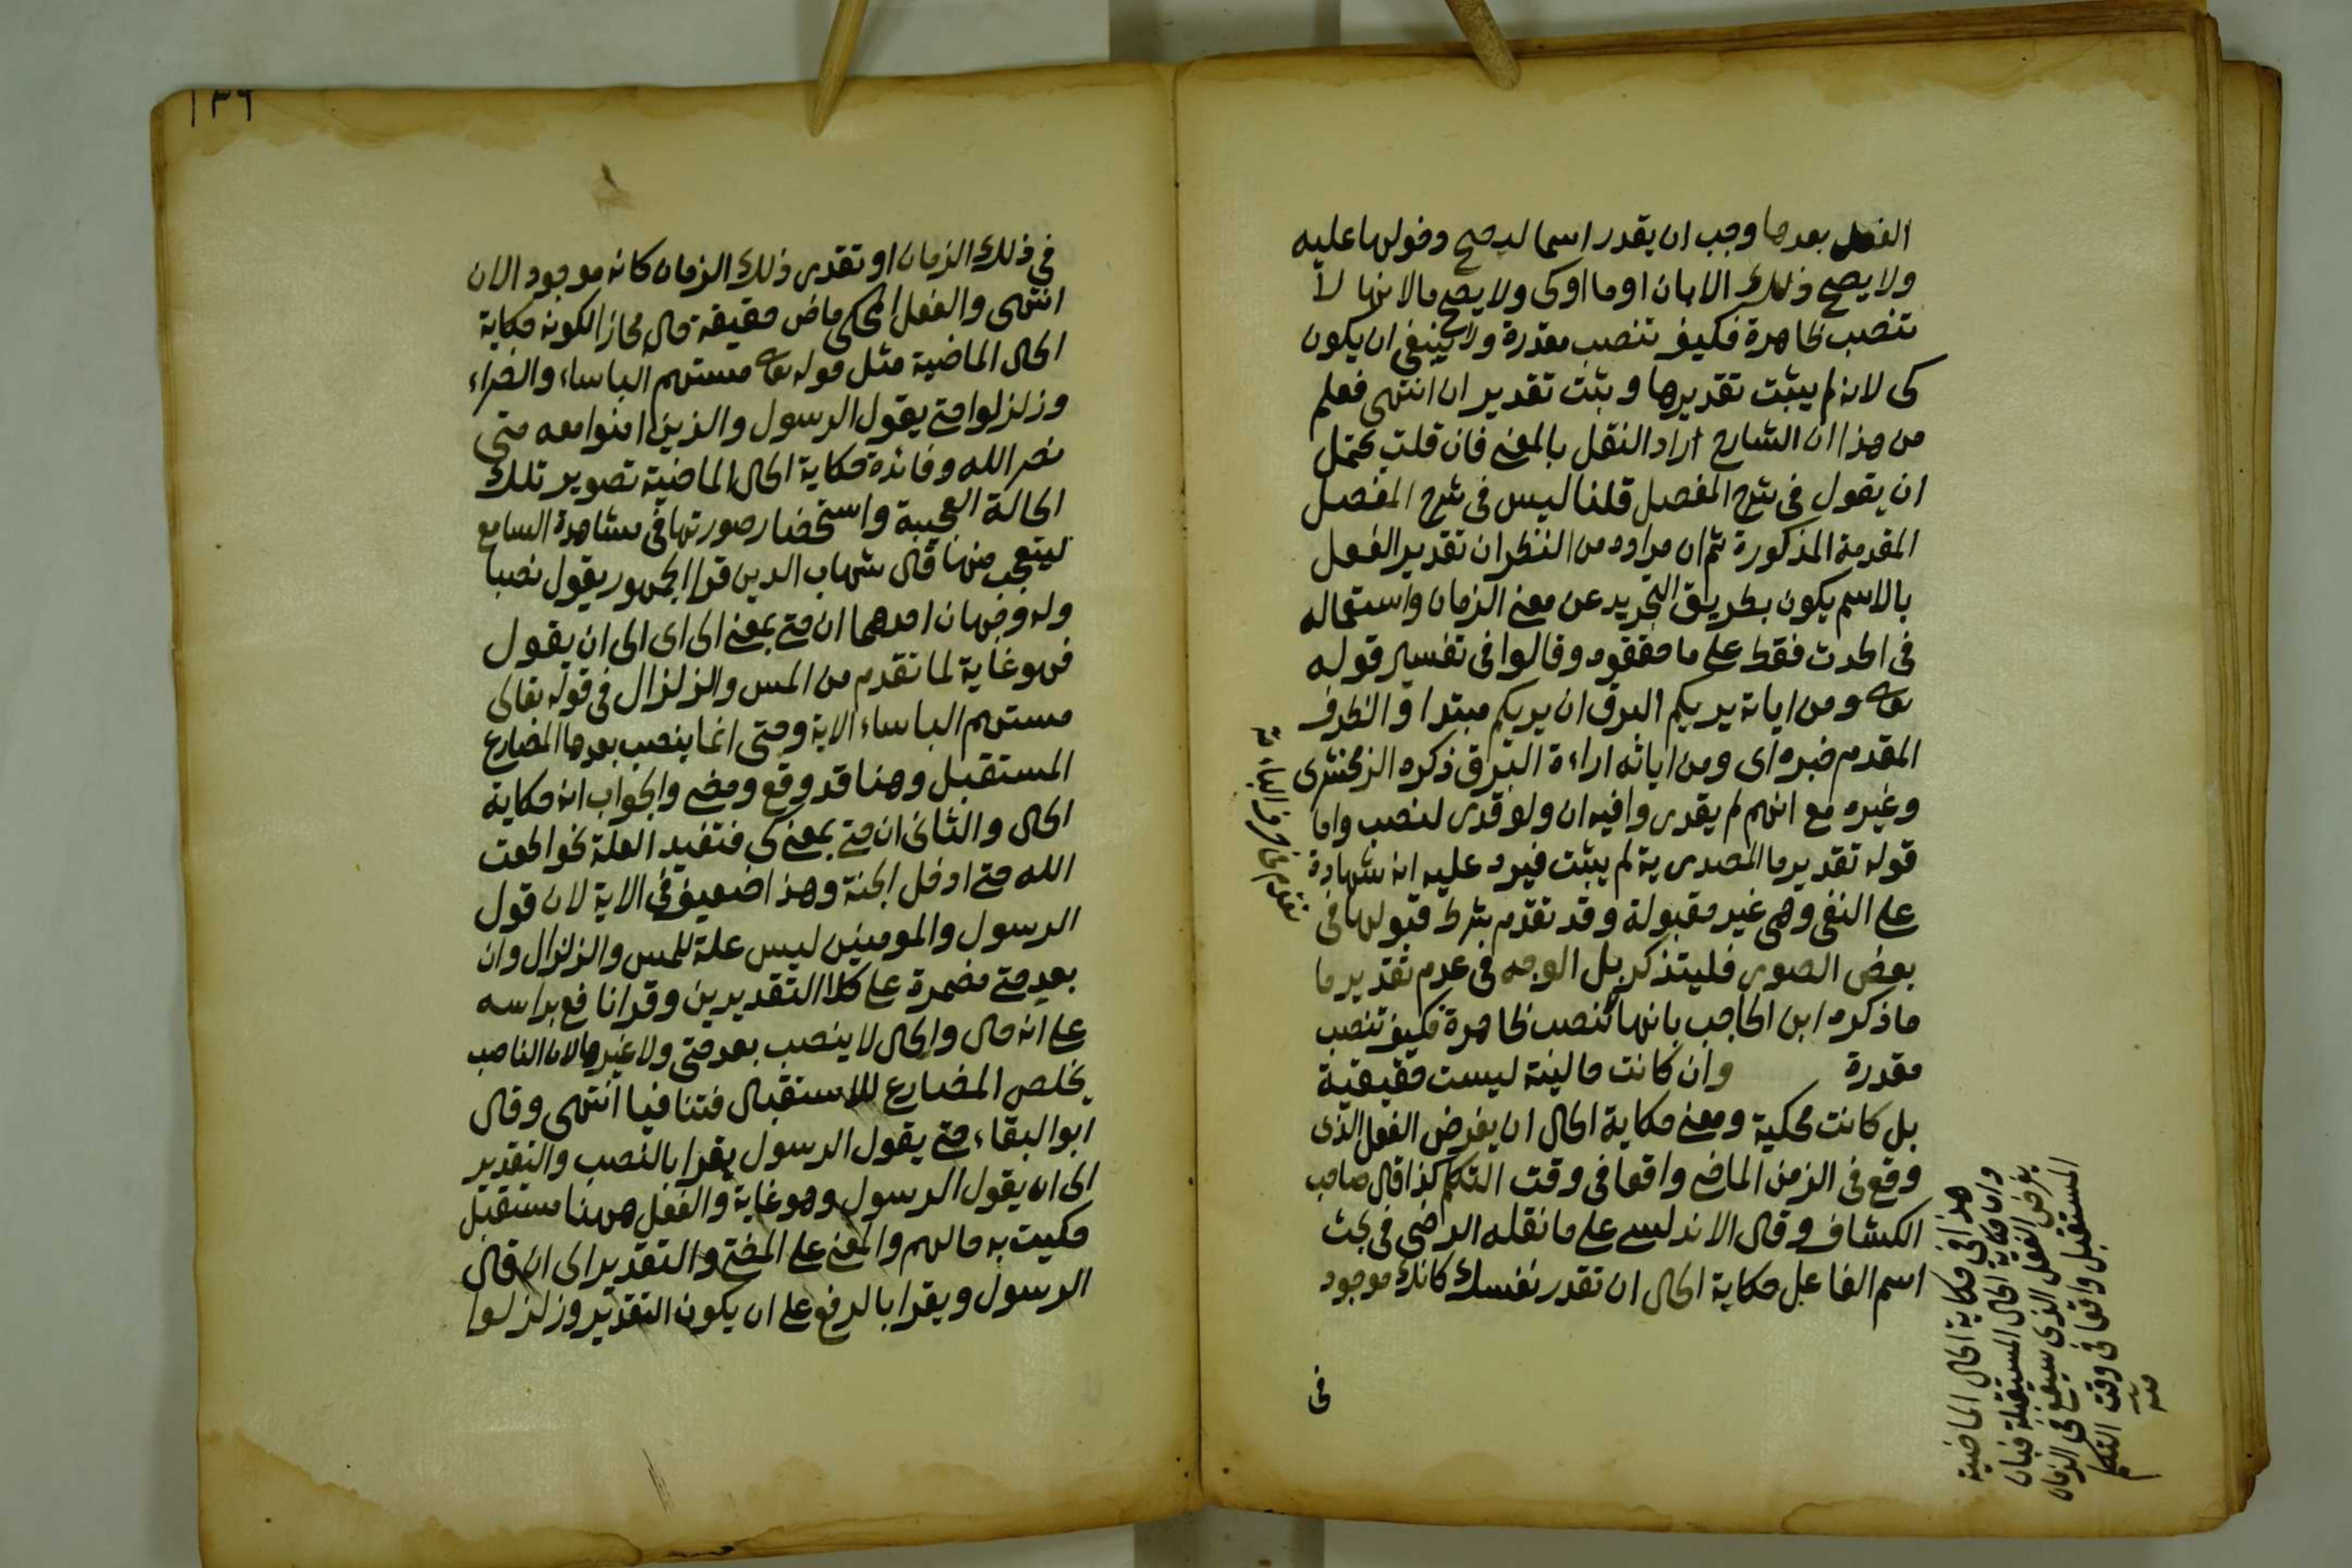 الفعل بعدها وجب ان يقدر اسما ليصح دخولها عليه
ولا يصح ذلك الا بان او ما او كى ولا يصح ما لانها لا
تنصب ظاهرة فكيف تنصب مقدرة ولا ينبغى ان يكون
كى لانه لم يثبت تقديرها وبثت تقدير ان انتهى فعلم
من هذا ان الشارح اراد النقل بالمعنى فان قلت يحتمل
ان يقول فى شرح المفصل قلنا ليس فى شرح المفصل
المقدمة المذكورة ثم ان مراده من النظر ان تقدير الفعل
بالاسم يكون بطريق التجريد عن معنى الزمان واستعماله
فى الحدث فقط على ما حققوه وقالوا فى تفسير قوله
تعه ومن اياته يريكم البرق ان يريكم مبتدا والظرف
المقدم خبره اى ومن اياته اراءة البرق ذكره الزمخشرى
وغيره مع انهم لم يقدروا فيه ان ولو قدر لنصب واما
قوله تقدير ما المصدرية لم يثبت فيرد عليه انه شهادة
على النفى وهى غير مقبولة وقد تقدم شرط قبولها فى
بعض الصور فليتذكر بل الوجه فى عدم تقدير ما
ما ذكره ابن الحاجب بانها تنصب ظاهرة فكيف تنصب
مقدرة وان كانت حالينه ليست حقيقية
بل كانت محكية ومعنى حكاية الحال ان يفرض الفعل الذى
وقع فى الزمن الماضى واقعا فى وقت التكلم كذا قال صاحب
الكشاف وقال الاندلسى على ما نقله الرضى فى بحث
اسم الفاعل حكاية الحال ان تقدر نفسك كانك موجود
فى
هذا فى حكاية الحال الماضية
واما حكاية الحال المستقبلة فبان
يفرض الفعل الذى سيقع فى الزمان
المستقبل واقعا فى وقت التكلم
منه
١٣٦
فى ذلك الزمان او تقدر ذلك الزمان كانه موجود الان
انتهى والفعل المحكى ماض حقيقة حال مجازا لكونه حكاية
الحال الماضية مثل قوله تعه مستهم الباساء والضراء
وزلزلوا حتى يقول الرسول والذين امنوا معه متى
نصر الله وفائدة حكاية الحال الماضية تصوير تلك
الحالة العجيبة واستحضار صورتها فى مشاهدة السامع
ليتعجب منها قال شهاب الدين قرا الجمهور يقول نصبا
وله وجهان احدهما ان حتى بمعنى الى اى الى ان يقول
فهو غاية لما تقدم من المس والزلزال فى قوله تعالى
مستهم الباساء الاية وحتى انما ينصب بعدها المضارع
المستقبل وهنا قد وقع ومضى والجواب انه حكاية
الحال والثانى ان حتى بمعنى كى فتفيد العلة نحو اطعت
الله حتى ادخل الجنة وهذا ضعيف فى الاية لان قول
الرسول والمومنين ليس علة للمس والزلزال وان
بعد حتى مضمرة على كلا التقديرين وقرا نافع براسه
على انه حال والحال لا ينصب بعد حتى ولا غيرها لان الناصب
يخلص المضارع للاستقبال فتنافيا انتهى وقال
ابو البقاء حتى يقول الرسول يقرا بالنصب والتقدير
الى ان يقول الرسول وهو غاية والفعل ههنا مستقبل
حكيت به حالهم والمعنى على المضى والتقدير الى ان قال
الرسول ويقرا بالرفع على ان يكون التقدير وزلزلوا